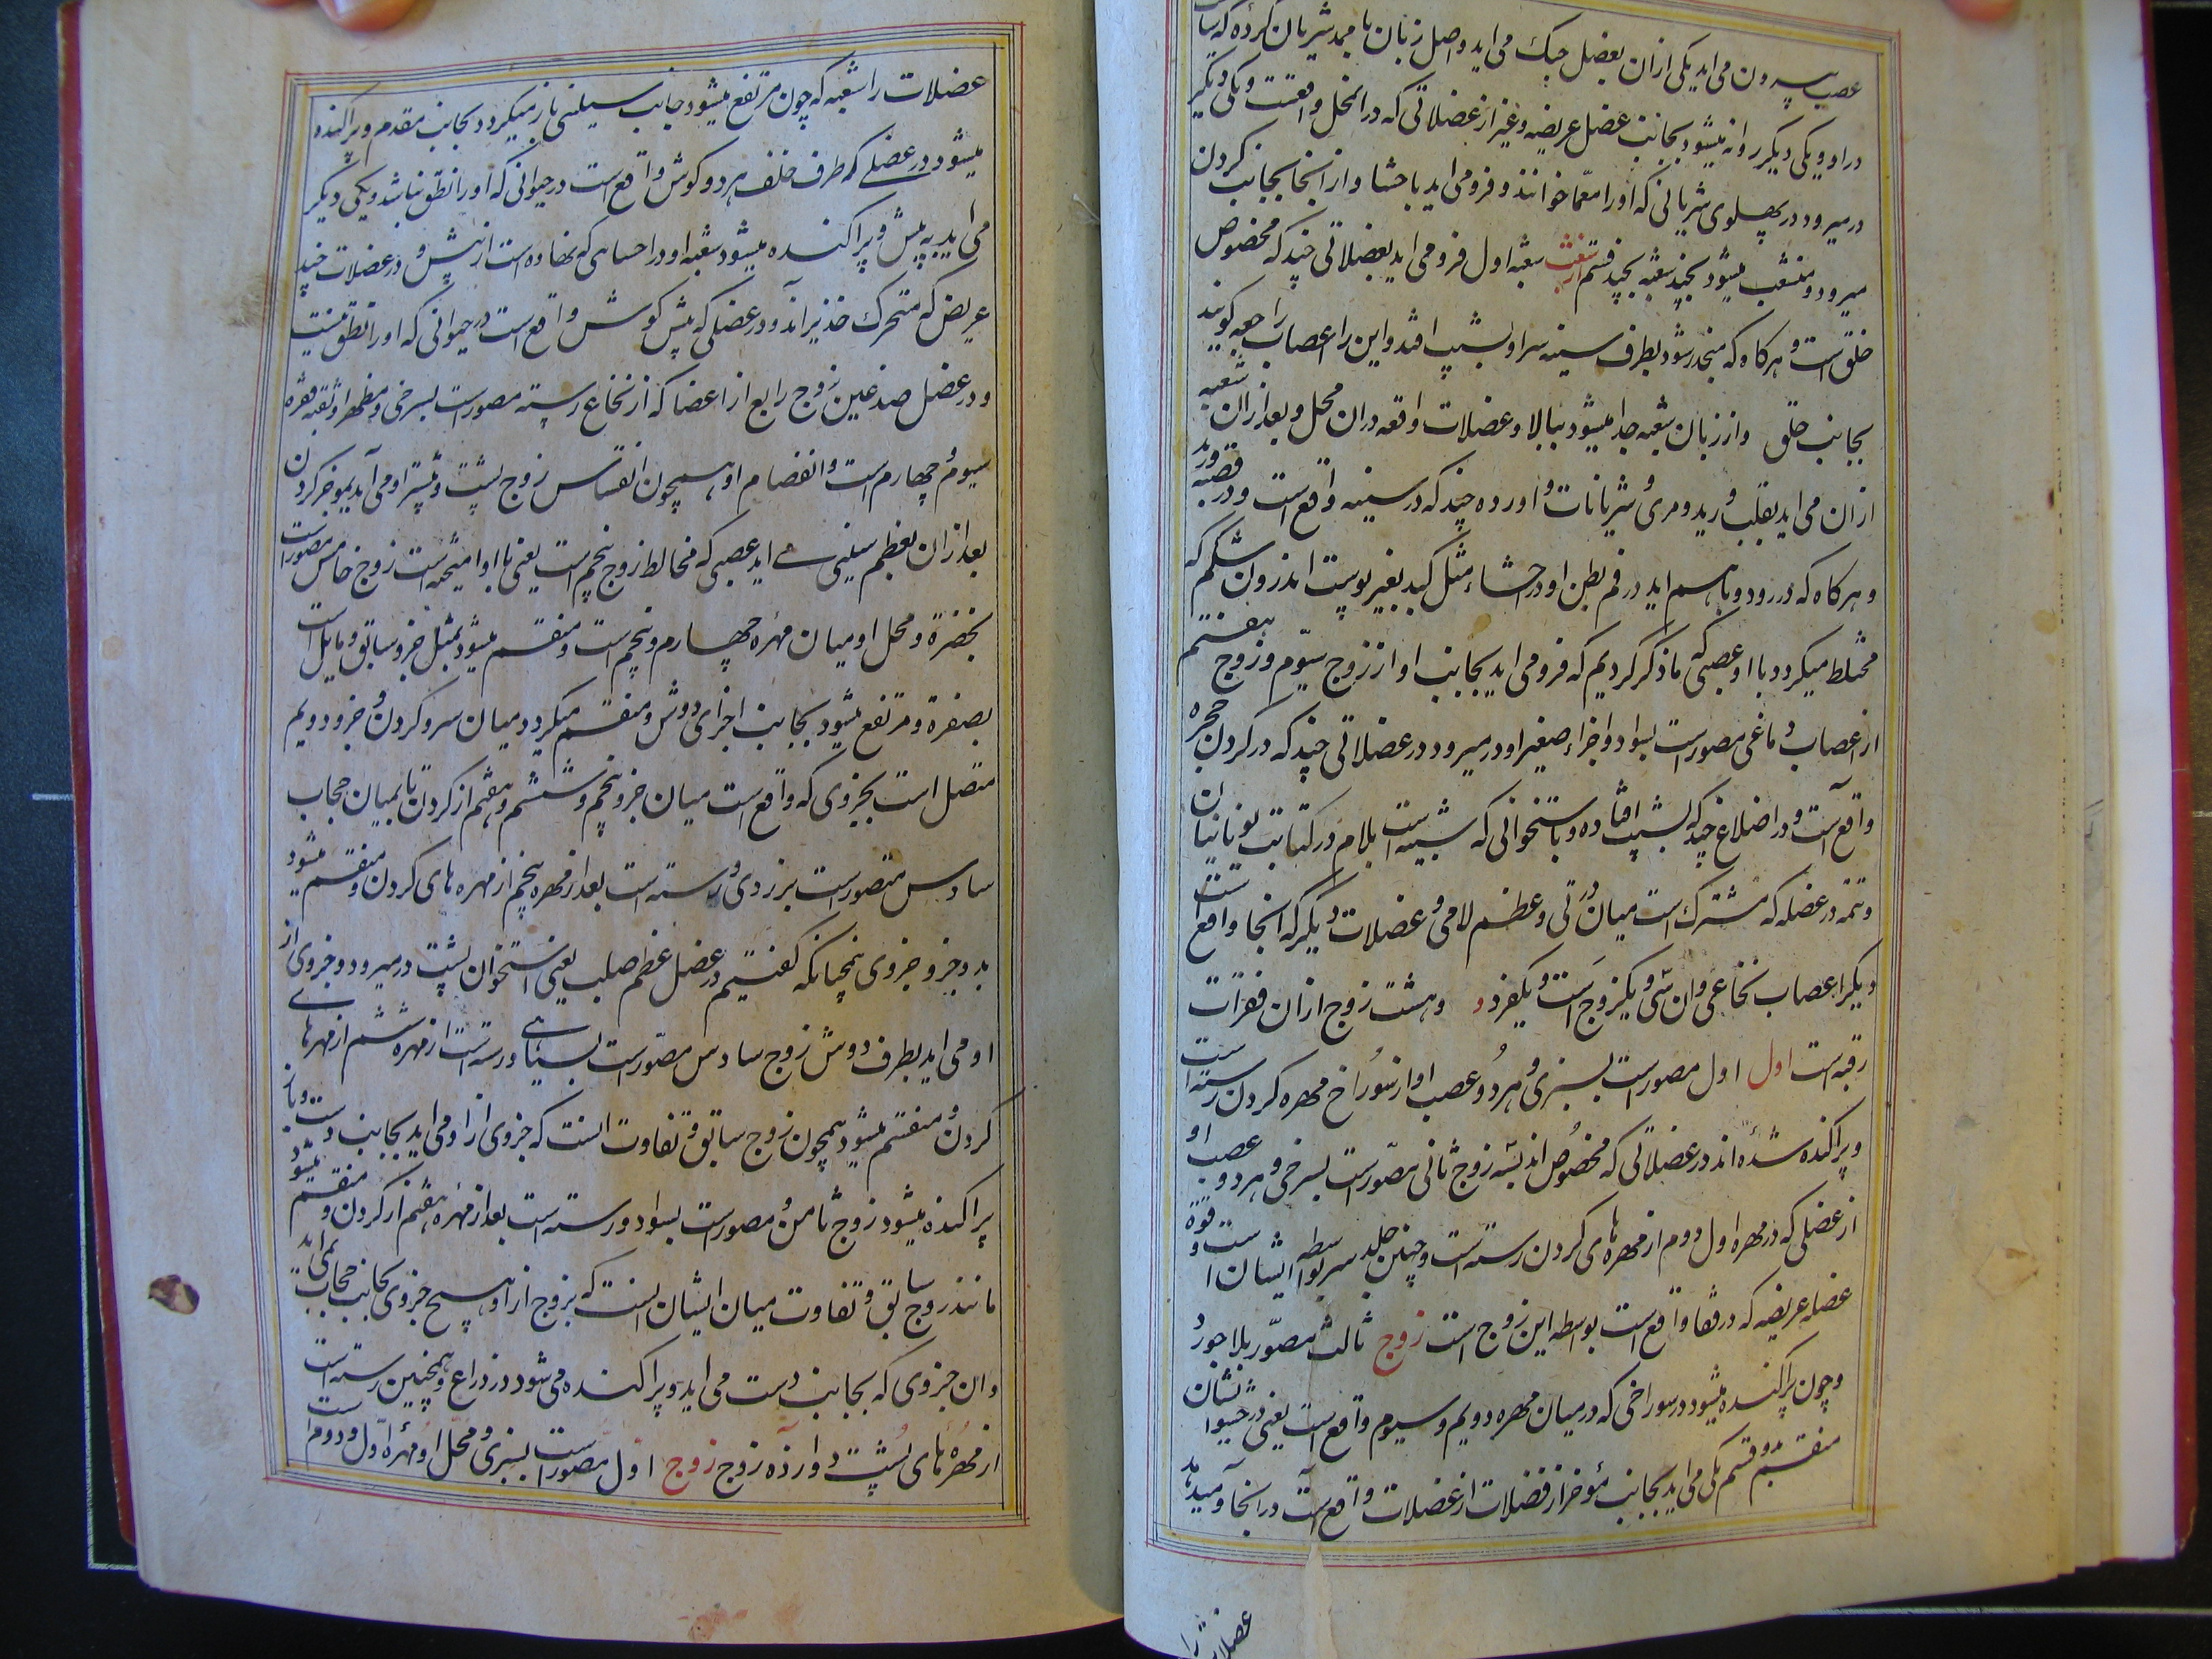 عصب بیرون می اید یکی ازان بعضل حبک می اید و اصل زبان تا ممد شریان کرده که سبات
دراد و یکی دیکر روانه میشود بجانب عضل عریضه و غیر از عضلاتی که در انمحل واقعست و یکی دیکر
درمیرود در پهلوی شریانی که اورا معما خوانند و فرو می اید باحشا و از انجا بجانب کردن
میرود و منشعب میشود بچند شعبه بچند قسم از شعب شعبه اول فرو می اید بعضلاتی چند که مخصوص
حلق است و هرکاه که منحدر شود بطرف سینه سر او بشیب افتد و این را اعصاب راجعه کویند
بجانب حلق و از زبان شعبه جدا میشود ببالا و عضلات واقعه دران محل و بعد ازان شعبه
ازان می اید بقلب و رید و مری و شریانات و اورده چند که در سینه واقع است و در قصبه ورید
و هرکاه که در رود و باهم اید در فم بطن او در احشاء مثل کبد بغیر پوست اندرون شکم که
مختلط میکردد با او عصبی که ما ذکر کردیم که فرو می اید بجانب او از زوج سیّوم و زوج هفتم
از اعصاب دماغی مصور است بسواد و اجزاء صغیر او درمیرود در عضلاتی چند که در کردن حجره
واقع است و در اضلاع چند که بشیب افتاده و باستخوانی که شبیه است بلام در کتابت یونانیان
و تتمه در عضله که مشترک است میان ورتی و عظم لامی و عضلات دیکر که انجا واقع است
دیکر اعصاب نخاعی و ان سی و یکزوج است و یکفرد و هشت زوج ازان فقرات
رقبه است اول اول مصور است بسبزی و هر دو عصب او از سوراخ مهره کردن رسته است
و پراکنده شده اند در عضلاتی که مخصوص اند بسته زوج ثانی مصور است بسرخی و هر دو عصب او
از عضلی که در مهره اول و دوم از مهره های کردن رسته است و چنین جلد سر بواسطه ایشان است و قوة
عضله عریضه که در قفا واقع است بواسطه این زوج است زوج ثالث مصوّر بلاجورد
و چون پراکنده میشود در سوراخی که در میان مهره دویم و سیوم واقع است یعنی در حیوانشان
منقسم بدو قسم یکی می اید بجانب مؤخر از فضلات از عضلات واقع است در انجا و میدهد
عضلات را
عضلات را شعبه که چون مرتفع میشود جانب سیلنی باز میکردد بجانب مقدم و پراکنده
میشود در عضلی که طرف خلف هر دو کوش واقع است در حیوانی که اورا نطق نباشد و یکی دیکر
می اید به پیش و پراکنده میشود شعبه او در احسامی که نهاده است از پیش و در عضلات چند
عریض که متحرک خدیراند و در عضلی که پیش کوش واقع است در حیوانی که اورا نطق نیست
و در عضل صدغین زوج رابع از اعضا که از نخاع رسته مصور است بسرخی و مظهر او ثقبه فقره
سیوم و چهارم است و انفصام او همچون انقسامس زوج پشت و بیشتر او می آید بموخر کردن
بعد ازان بعظم سینی می اید عصبی که مخالط زوج پنجم است یعنی با او امیخته است زوج خامس مصور است
بخضرة و محل او میان مهره چهارم و پنجم است و منقسم میشود بمثل جزو سابق و مایل است
بصفرة و مرتفع میشود بجانب اجزای دوش و منقسم میکردد میان سر و کردن و جزو دویم
متصل است بجزوی که واقع است میان جزو پنجم و ششم و هفتم از کردن تا بمیان حجاب
سادس متصور است بزردی و رسته است بعد از مهره پنجم از مهره های کردن و منقسم میشود
بدو جزو جزوی همچنانکه کفتیم در عضل عظم صلب یعنی استخوان پشت درمیرود و جزوی از
او می اید بطرف دوش زوج سادس مصوّر است بسیاهی و رسته است از مهره ششم از مهرهای
کردن و منقسم میشود همچون زوج سابق و تفاوت انست که جزوی ازاد می اید بجانب دست و باز
پراکنده میشود زوج ثامن و مصور است بسواد و رسته است بعد از مهره هفتم از کردن و منقسم میشود
مانند زوج سابق و تفاوت میان ایشان انست که بزوج ازاو هیچ جزوی بجانب حجاب نمی اید
و ان جزوی که بجانب دست می اید و پراکنده می شود در ذراع و همچنین رسته است
از مهره های پشت دوازده زوج زوج اول مصور است بسبزی و محل او مهره اول و دوم است